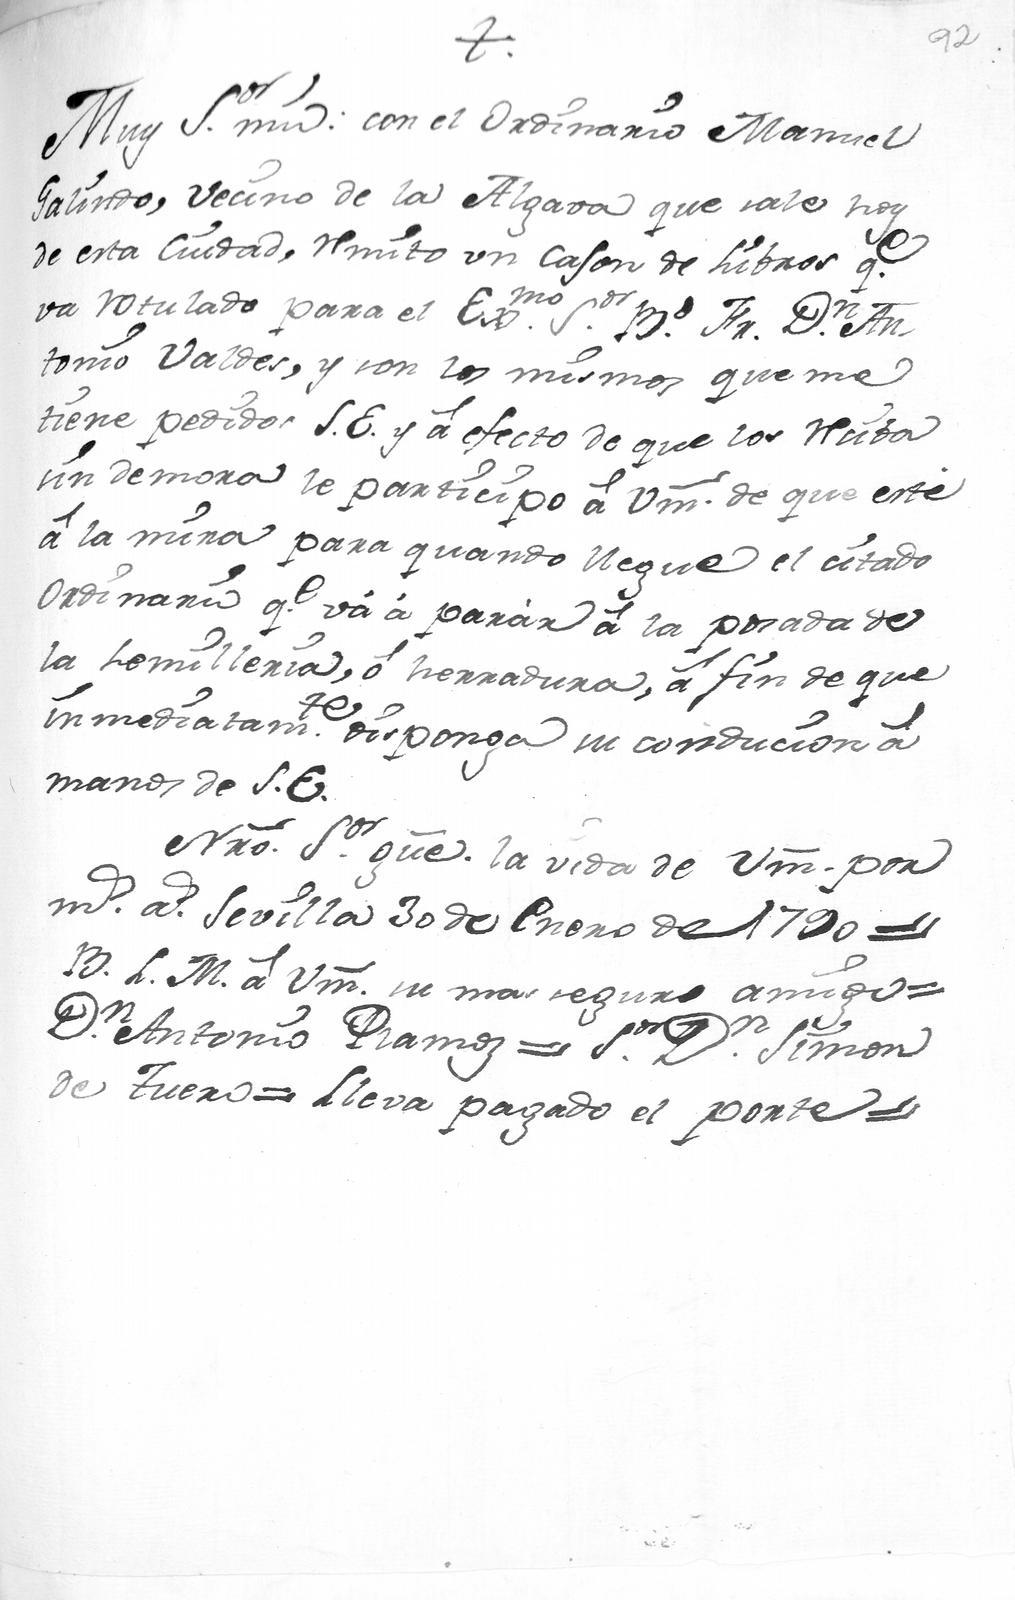 92
Muy S.or mio: con el Ordinario Manuel
Galindo, vecino de la Algava que sale hoy
de esta Ciudad, remito un Cason de Libros q.e
va rotulado para el Exmo. S.or B.o Fr. D.n An
tonio Valdes, y son los mismos que me
tiene pedidos S.E. y á efecto de que los reciba
sin demora le participo á Vm. de que esté
á la mira para quando llegue el citado
Ordinario q.e vá á parár á la posada de
la Semilleria, ó herradura, á fin de que
inmediatam.te disponga su conducion á
manos de S.E.
Nro. S.or gue. la vida de Vm. por
m.s a.s Sevilla 30 de Enero de 1790 =
B. L. M. á Vm. su mas seguro amigo =
D.n Antonio Ramoz = S.or D.n Simon
de Tuero = Lleva pagado el porte =